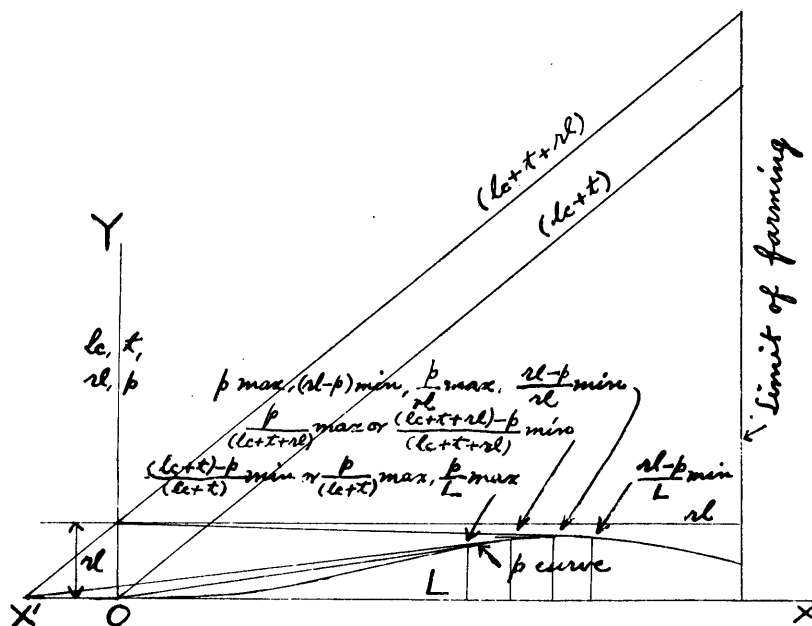 (lc+t+rl)
(lc+t)
Limit of farming
Y
lc, t,
rl, p
p max, (rl-p) min, p/rl max, rl-p/rl min
p/(lc+t+rl) max or (lc+t+rl)-p/(lc+t+rl) min
(lc+t)-p/(lc+t) min or p/(lc+t) max, p/L max
rl-p/L min
rl
rl
p curve
L
X'
O
X